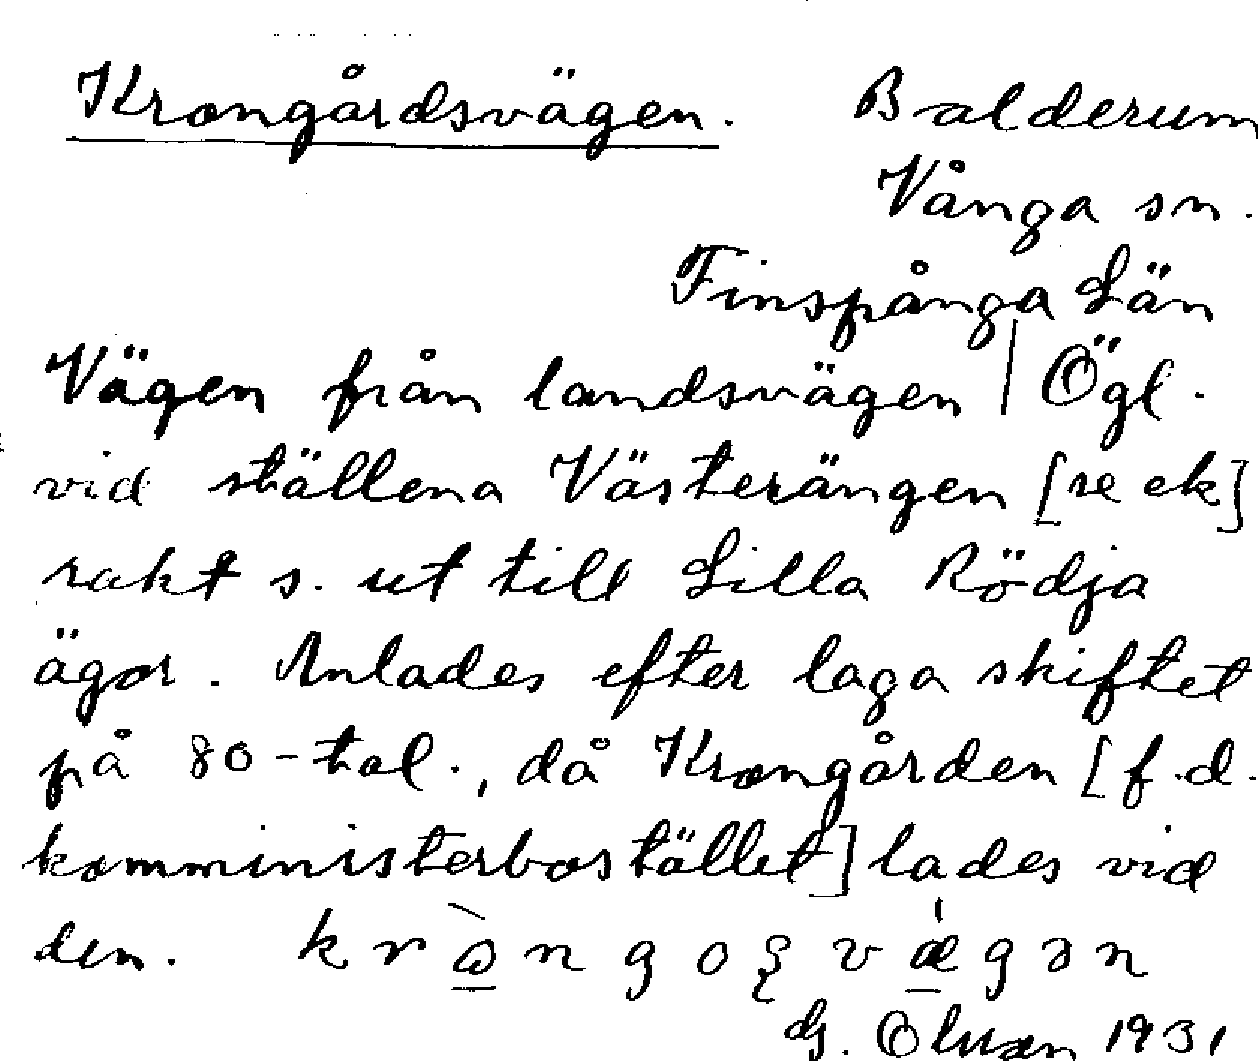 Krongårdsvägen. Balderum
Vånga sn.
Finspånga Län
Vägen från landsvägen | Ögl.
vid ställena Västerängen [se ek]
rakt s. ut till Lilla Rödja
ägor. Anlades efter laga skiftet
på 80-tal., då Krongården [f.d.
komministerbostället] lades vid
den.
G. 1931